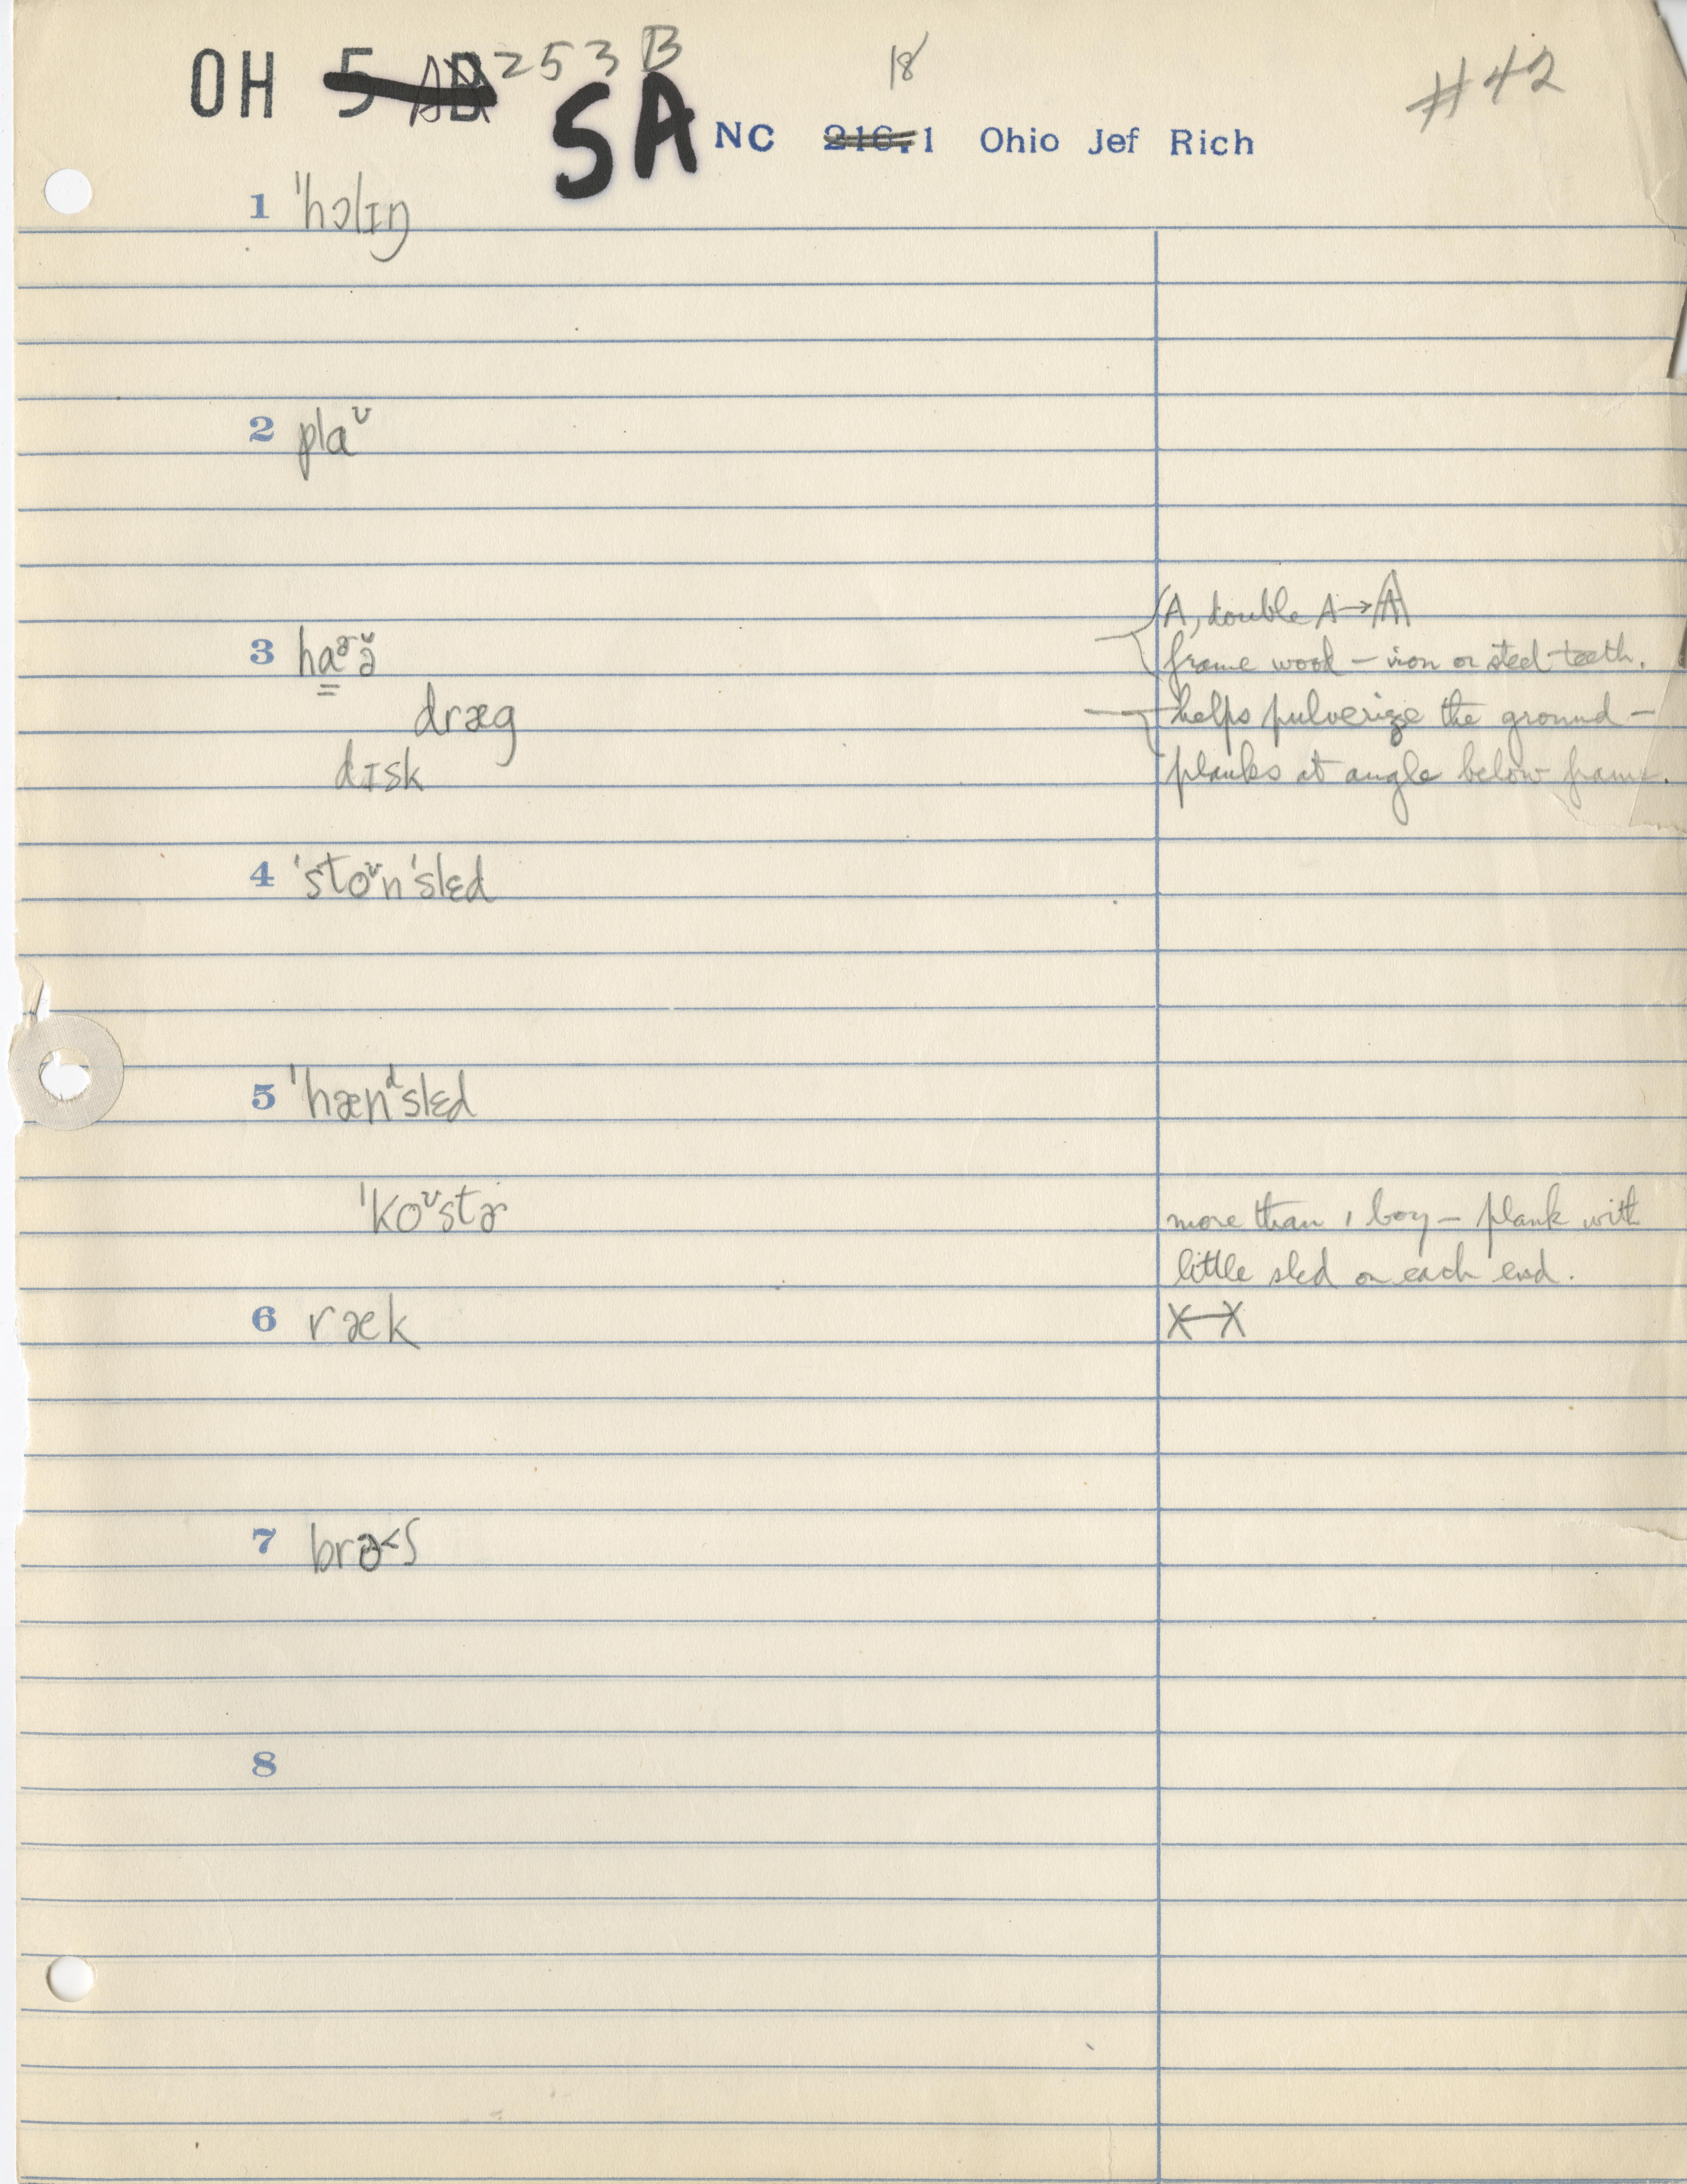 OH 5 B 253B 18 #42
5A NC 216.1 Ohio Jef Rich
1 ˈhɔlɪŋ
2 plaᶷ
A, double A→A
3 haᵊ˞ə̆ frame wood – iron or steel teeth.
dræg helps pulverize the ground –
dɪsk planks at angle below frame.
4 ˈstoᶷnˈslɛd
5 ˈhænᵈslɛd
ˈkoᶷstɚ more than 1 boy – plank with
little sled on each end.
6 ræk X–X
7 brə˂ʃ
8